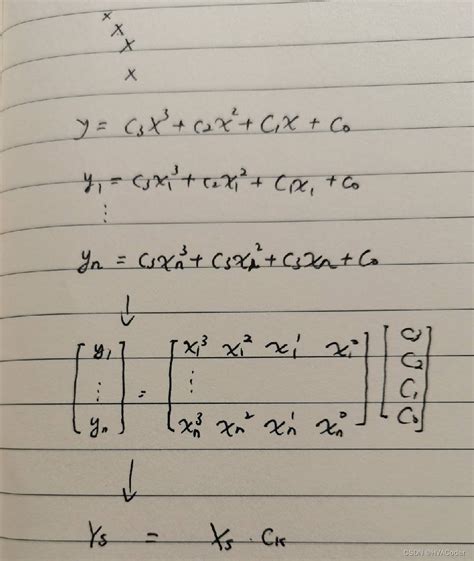 y = C₃x³ + C₂x² + C₁x + C₀
y₁ = C₃x₁³ + C₂x₁² + C₁x₁ + C₀
⋮
yₙ = C₃xₙ³ + C₃xₙ² + C₃xₙ + C₀
↓
[y₁ ⋮ yₙ] = [x₁³ x₁² x₁¹ x₁⁰ ⋮ xₙ³ xₙ² xₙ¹ xₙ⁰] [C₃ C₂ C₁ C₀]
↓
Ys = Xs · Ck
CSDN @HVACoder